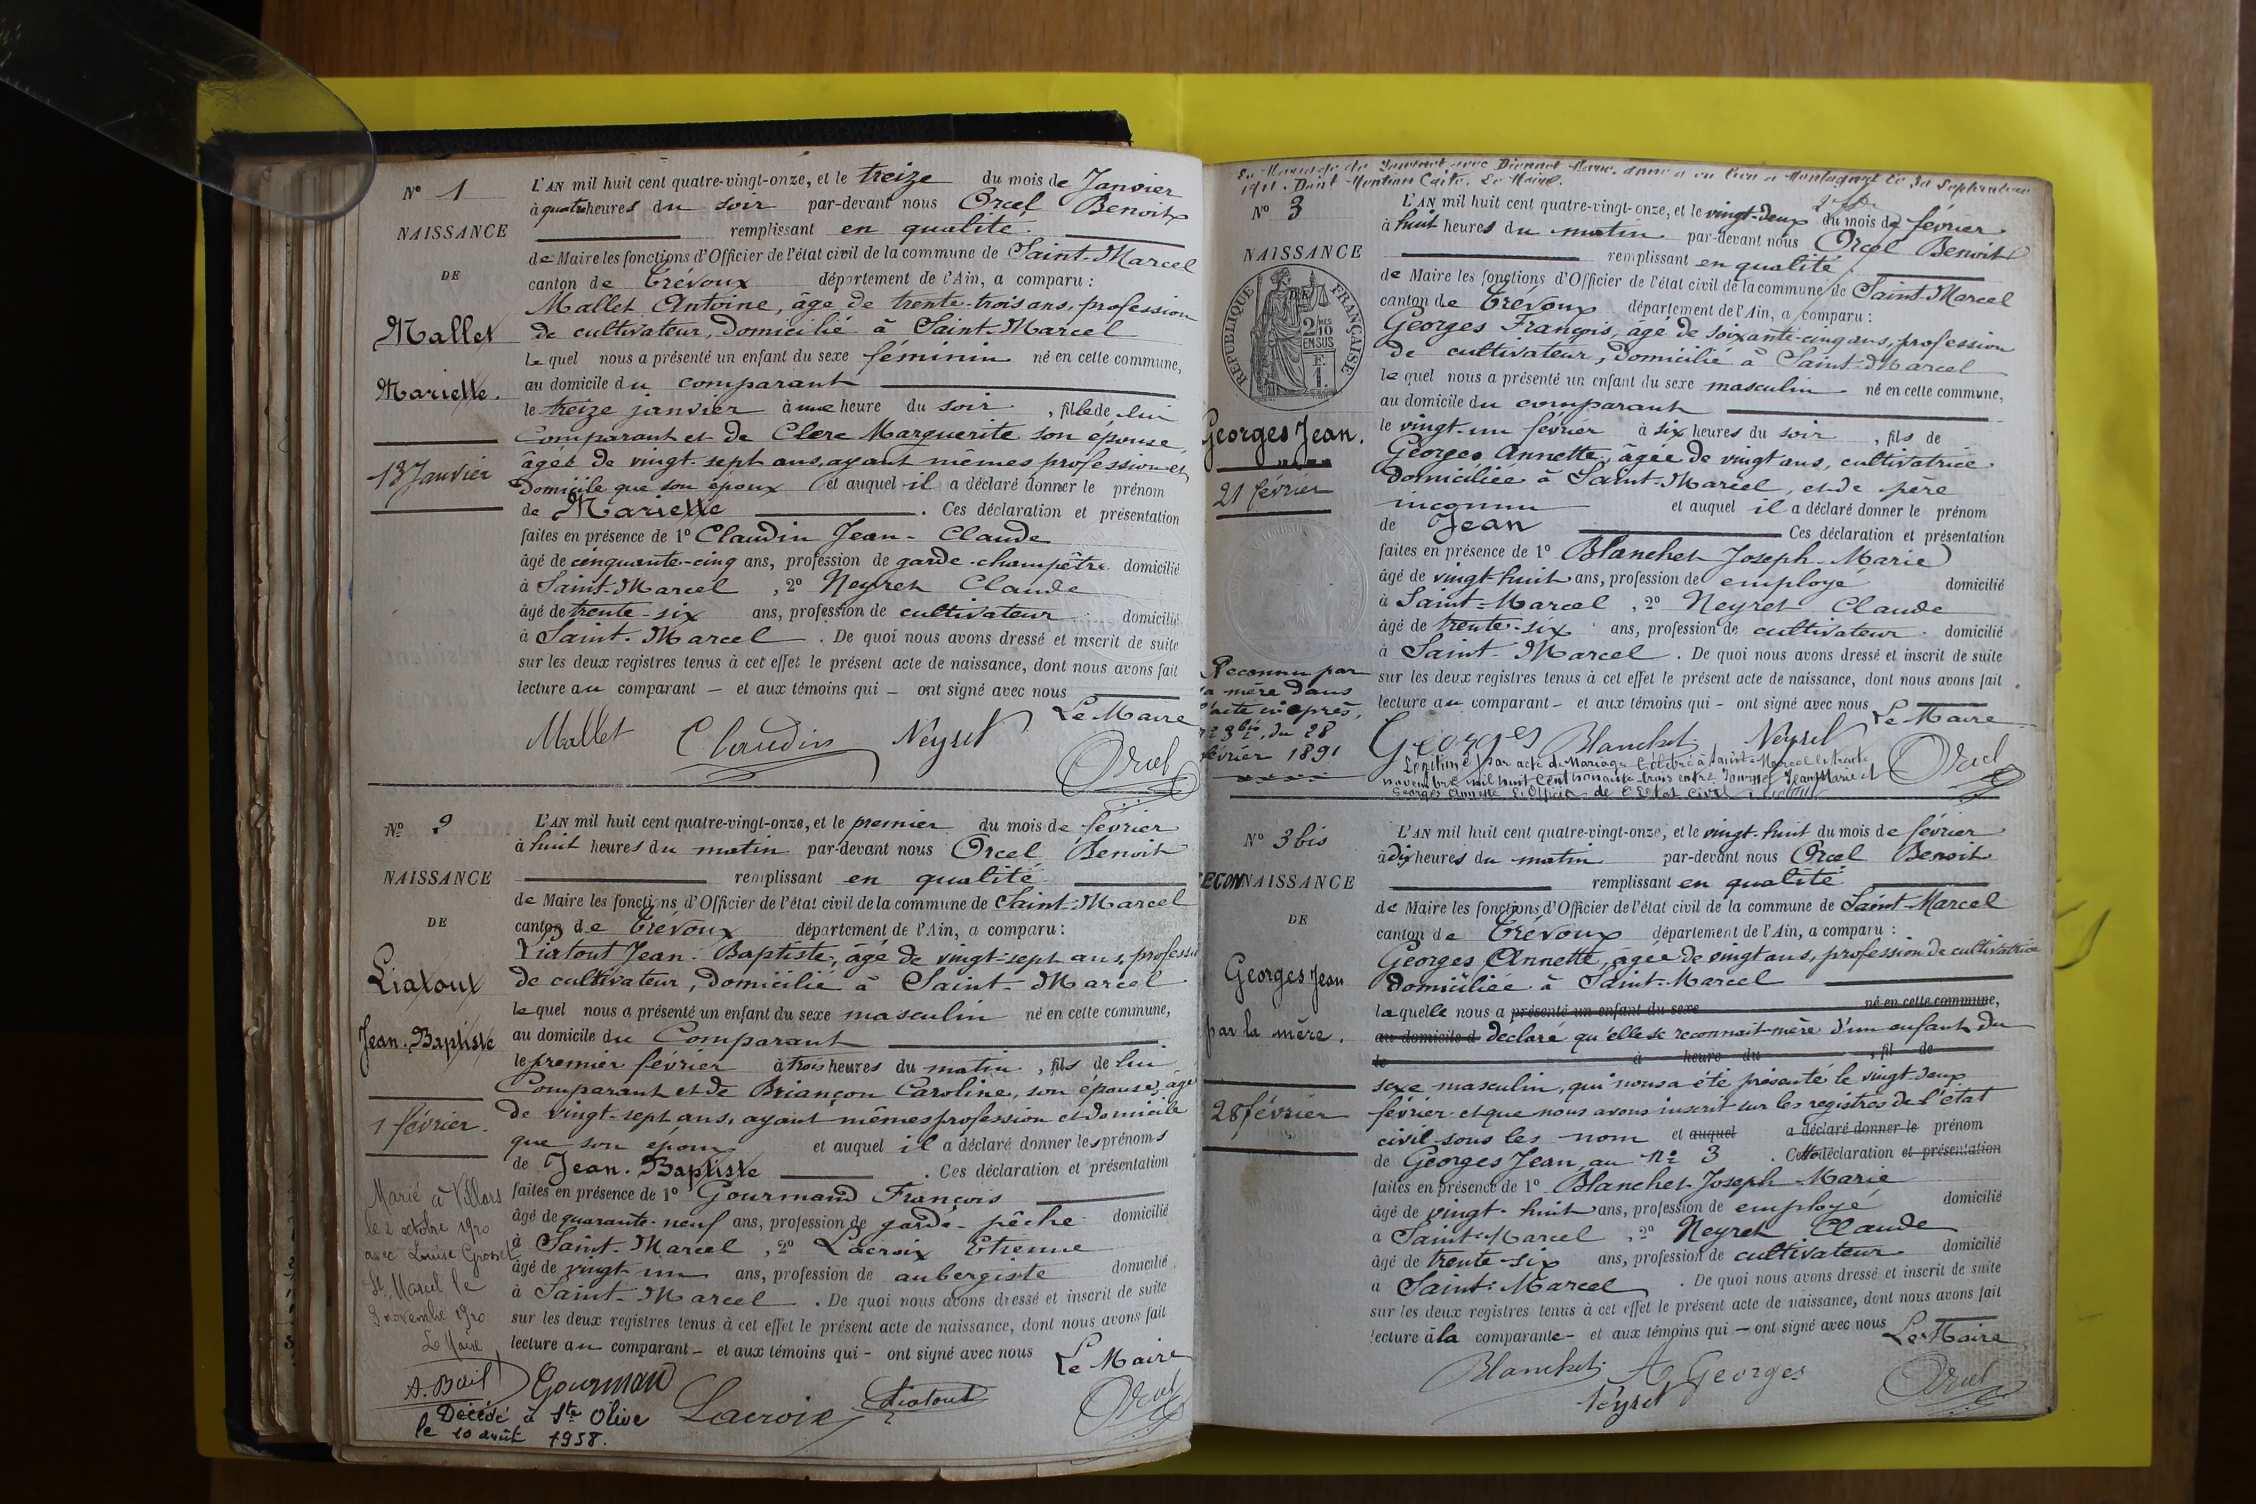 N° 1
NAISSANCE
DE
Mallet
Marielle.
13 Janvier
L'AN mil huit cent quatre-vingt-onze, et le treize du mois de Janvier
à quatre heures du soir par-devant nous Orcel Benoit
remplissant en qualité
de Maire les fonctions d'Officier de l'état civil de la commune de Saint-Marcel
canton de Trévoux département de l'Ain, a comparu :
Mallet Antoine, âgé de trente-trois ans, profession
de cultivateur, domicilié à Saint-Marcel
lequel nous a présenté un enfant du sexe féminin né en cette commune,
au domicile du comparant
le treize janvier à une heure du soir, fille de lui
Comparant et de Clerc Marguerite son épouse,
âgée de vingt-sept ans, ayant mêmes profession et
Domicile que son époux et auquel il a déclaré donner le prénom
de Marielle. Ces déclaration et présentation
faites en présence de 1° Claudin Jean-Claude
âgé de cinquante-cinq ans, profession de garde-champêtre domicilié
à Saint-Marcel, 2° Neyret Claude
âgé de trente-six ans, profession de cultivateur domicilié
à Saint-Marcel. De quoi nous avons dressé et inscrit de suite
sur les deux registres tenus à cet effet le présent acte de naissance, dont nous avons fait
lecture au comparant - et aux témoins qui - ont signé avec nous
Le Maire
Mallet Claudin Neyret Orcel
N° 2
NAISSANCE
DE
Liatout
Jean-Baptiste
1 février.
Marié à Villars
le 2 octobre 1920
avec Louise Grosset
St Marcel le
9 novembre 1920
Le Maire
A. Bail
Décédé à Ste Olive
le 10 août 1958.
L'AN mil huit cent quatre-vingt-onze, et le premier du mois de février
à huit heures du matin par-devant nous Orcel Benoit
remplissant en qualité
de Maire les fonctions d'Officier de l'état civil de la commune de Saint-Marcel
canton de Trévoux département de l'Ain, a comparu :
Liatout Jean-Baptiste, âgé de vingt-sept ans, professi
de cultivateur, domicilié à Saint-Marcel
lequel nous a présenté un enfant du sexe masculin né en cette commune,
au domicile du Comparant
le premier février à trois heures du matin, fils de lui
Comparant et de Briançon Caroline, son épouse, âgée
de vingt-sept ans, ayant mêmes profession et domicile
que son époux et auquel il a déclaré donner les prénoms
de Jean-Baptiste. Ces déclaration et présentation
faites en présence de 1° Gourmand François
âgé de quarante-neuf ans, profession de garde-pêche domicilié
à Saint-Marcel, 2° Lacroix Etienne
âgé de vingt-un ans, profession de aubergiste domicilié
à Saint-Marcel. De quoi nous avons dressé et inscrit de suite
sur les deux registres tenus à cet effet le présent acte de naissance, dont nous avons fait
lecture au comparant - et aux témoins qui - ont signé avec nous
Le Maire
Gourmand Lacroix Liatout Orcel
Montagnat le 30 Septembre
1911. Dont Mention Le Maire.
N° 3
NAISSANCE
REPUBLIQUE FRANÇAISE
2/10 EN SUS
1 F.
Georges Jean.
21 février
Reconnu par
la mère dans
l'acte ci-après,
n° 3 bis, du 28
février 1891
L'AN mil huit cent quatre-vingt-onze, et le vingt-deux du mois de février
à huit heures du matin par-devant nous Orcel Benoit
remplissant en qualité
de Maire les fonctions d'Officier de l'état civil de la commune de Saint-Marcel
canton de Trévoux département de l'Ain, a comparu :
Georges François, âgé de soixante-cinq ans, profession
de cultivateur, domicilié à Saint-Marcel
lequel nous a présenté un enfant du sexe masculin né en cette commune,
au domicile du comparant
le vingt-un février à six heures du soir, fils de
Georges Annette, âgée de vingt ans, cultivatrice
domiciliée à Saint-Marcel, et de père
inconnu et auquel il a déclaré donner le prénom
de Jean Ces déclaration et présentation
faites en présence de 1° Blanchet Joseph-Marie
âgé de vingt-huit ans, profession de employé domicilié
à Saint-Marcel, 2° Neyret Claude
âgé de trente-six ans, profession de cultivateur domicilié
à Saint-Marcel. De quoi nous avons dressé et inscrit de suite
sur les deux registres tenus à cet effet le présent acte de naissance, dont nous avons fait
lecture au comparant - et aux témoins qui - ont signé avec nous
Le Maire
Georges Blanchet Neyret Orcel
Légitimé par acte de Mariage célébré à Saint-Marcel le trente
novembre mil huit cent nonante-trois entre Jean Marie et
Georges Annette L'Officier de l'Etat Civil
N° 3 bis
RECONNAISSANCE
DE
Georges Jean
par la mère.
28 février
L'AN mil huit cent quatre-vingt-onze, et le vingt-huit du mois de février
à dix heures du matin par-devant nous Orcel Benoit
remplissant en qualité
de Maire les fonctions d'Officier de l'état civil de la commune de Saint-Marcel
canton de Trévoux département de l'Ain, a comparu :
Georges Annette, âgée de vingt ans, profession de cultivatrice
domiciliée à Saint-Marcel
laquelle nous a présenté un enfant du sexe né en cette commune,
au domicile d déclaré qu'elle se reconnait mère d'un enfant du
le à heure du , fil de
sexe masculin, qui nous a été présenté le vingt-deux
février et que nous avons inscrit sur les registres de l'état
civil sous les nom et auquel a déclaré donner le prénom
de Georges Jean, au n° 3. Cette déclaration et présentation
faites en présence de 1° Blanchet Joseph-Marie
âgé de vingt-huit ans, profession de employé domicilié
a Saint-Marcel, 2° Neyret Claude
âgé de trente-six ans, profession de cultivateur domicilié
a Saint-Marcel. De quoi nous avons dressé et inscrit de suite
sur les deux registres tenus à cet effet le présent acte de naissance, dont nous avons fait
lecture à la comparante - et aux témoins qui - ont signé avec nous
Le Maire
Blanchet A Georges
Neyret Orcel